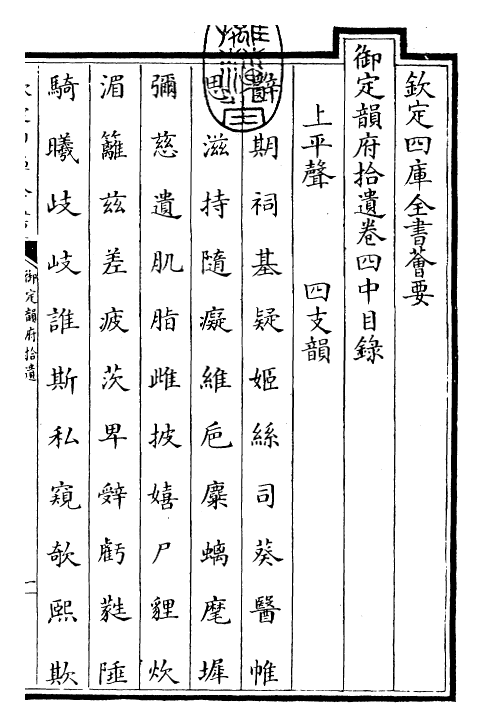 欽定四庫全書薈要
御定韻府拾遺卷四中目錄
上平聲 四支韻
辭期祠基疑姬絲司葵醫帷
思滋持隨癡維巵麋螭麾墀
彌慈遺肌脂雌披嬉尸貍炊
湄籬茲差疲茨卑辤虧蕤陲
騎曦歧岐誰斯私窺欹熙欺
御定韻府拾遺
一